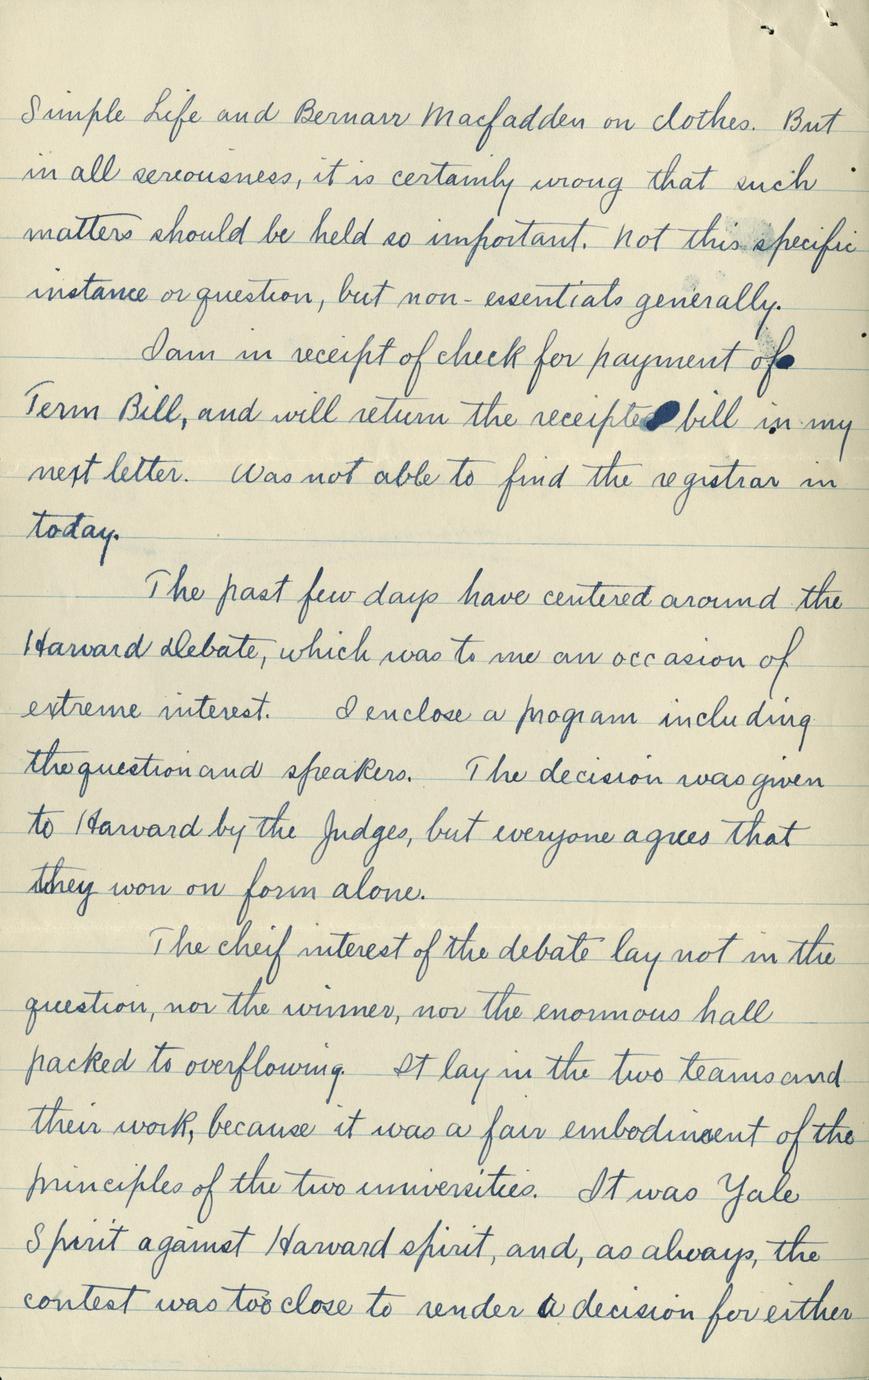 Simple Life and Bernarr Macfadden on clothes. But
in all sereousness, it is certainly wrong that such
matters should be held so important. Not this specific
instance or question, but non-essentials generally.
I am in receipt of check for payment of
Term Bill, and will return the receipted bill in my
next letter. Was not able to find the registrar in
today.
The past few days have centered around the
Harvard Debate, which was to me an occasion of
extreme interest. I enclose a program including
the question and speakers. The decision was given
to Harvard by the Judges, but everyone agrees that
they won on form alone.
The cheif interest of the debate lay not in the
question, nor the winner, nor the enormous hall
packed to overflowing. It lay in the two teams and
their work, because it was a fair embodiment of the
principles of the two universities. It was Yale
Spirit against Harvard spirit, and, as always, the
contest was too close to render a decision for either